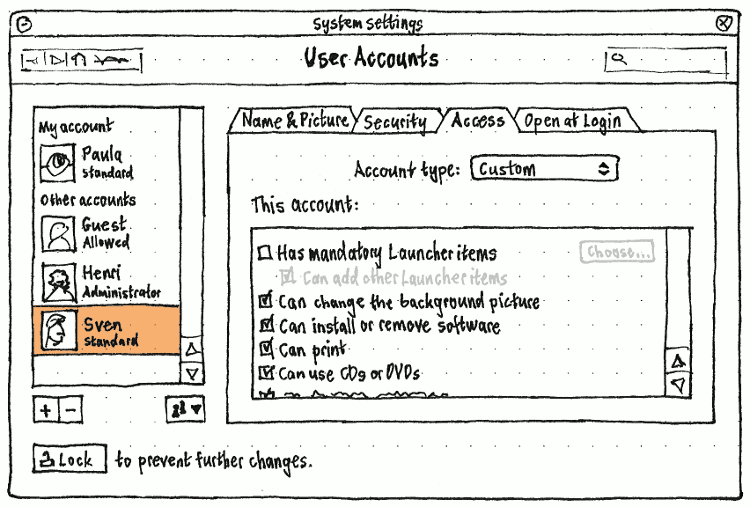 System settings
User Accounts
My account
Paula
Standard
Other accounts
Guest
Allowed
Henri
Administrator
Sven
Standard
+ -
Lock to prevent further changes.
Name & Picture Security Access Open at Login
Account type: Custom
This account:
Has mandatory Launcher items Choose...
Can add other Launcher items
Can change the background picture
Can install or remove software
Can print
Can use CDs or DVDs